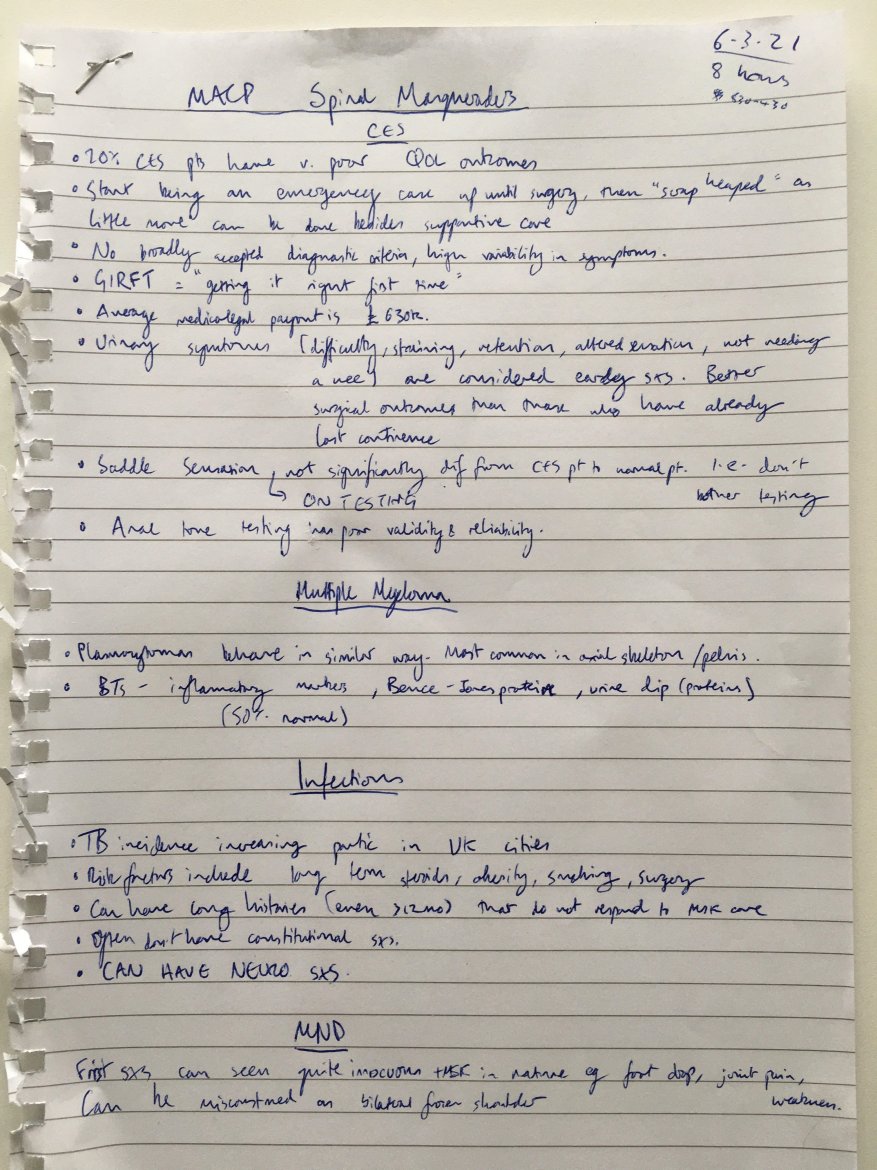 6-3-21
8 hours
830-430
MACP Spinal Masqueraders
CES
• 20% CES pts have v. poor QOL outcomes
• Start being an emergency case up until surgery, then "scrap heaped" as
little more can be done besides supportive care
• No broadly accepted diagnostic criteria, high variability in symptoms.
• GIRFT = "getting it right first time"
• Average medicolegal payout is £630k.
• Urinary symptoms (difficulty, straining, retention, altered sensation, not needing
a wee) are considered early sxs. Better
surgical outcomes than those who have already
lost continence
• Saddle sensation, not significantly dif from CES pt to normal pt. I.e. don't
↳ ON TESTING bother testing
• Anal tone testing has poor validity & reliability.
Multiple Myeloma
• Plasmocytomas behave in similar way. Most common in axial skeleton/pelvis.
• BTs - inflammatory markers, Bence-Jones protein, urine dip (proteins)
(50% normal)
Infections
• TB incidence increasing partic in UK cities
• Risk factors include long term steroids, obesity, smoking, surgery
• Can have long histories (even >12mo) that do not respond to MSK care
• Often don't have constitutional sxs.
• CAN HAVE NEURO SXS.
MND
First sxs can seem quite inocuous + MSK in nature eg foot drop, joint pain,
weakness.
Can be misconstrued as bilateral frozen shoulder